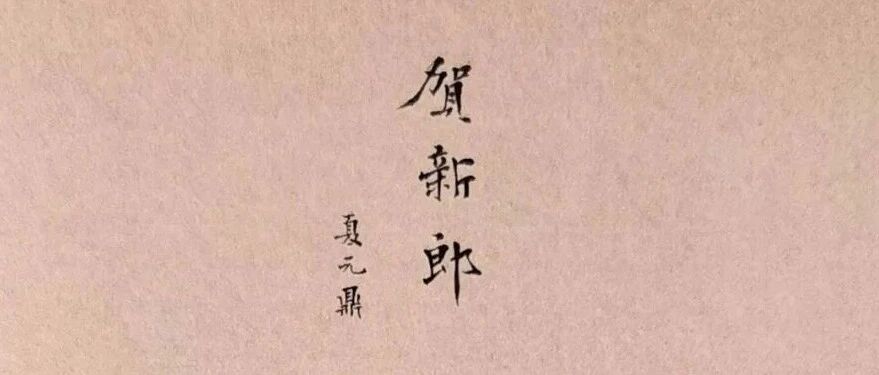 賀新郎
夏元鼎